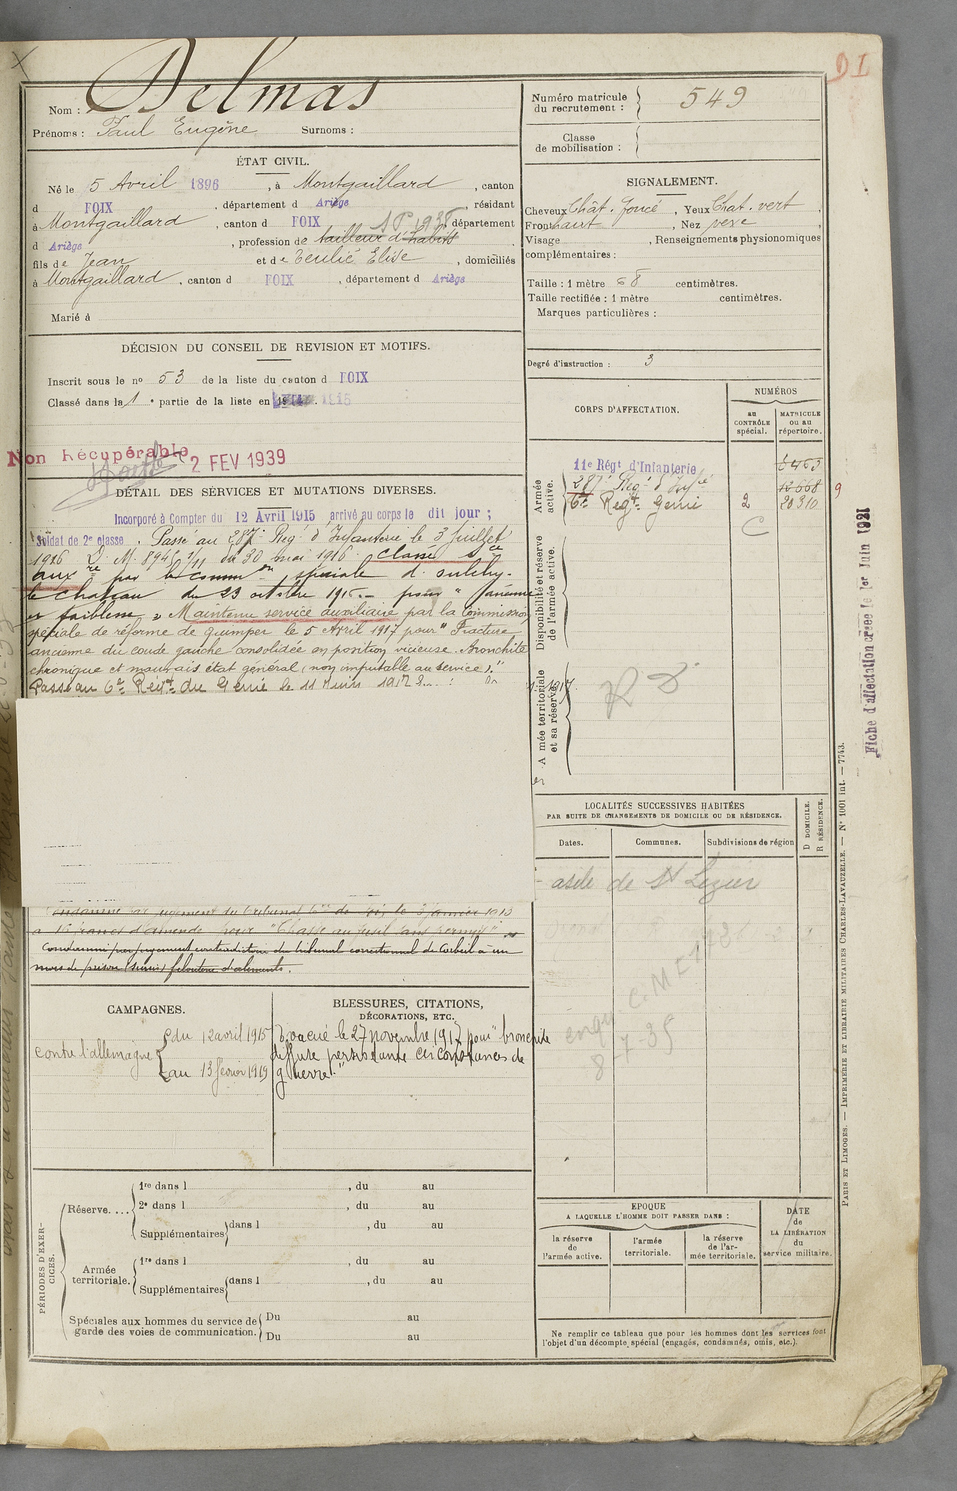 Nom : Delmas
Prénoms : Paul Eugène Surnoms :
ÉTAT CIVIL.
Né le 5 Avril 1896, à Montgaillard, canton
d FOIX, département d Ariège, résidant
à Montgaillard, canton d FOIX département
d Ariège, profession de tailleur d'habits
fils de Jean et de Teulié Elise, domiciliés
à Montgaillard, canton d FOIX, département d Ariège
Marié à
DÉCISION DU CONSEIL DE REVISION ET MOTIFS.
Inscrit sous le nº 53 de la liste du canton d FOIX
Classé dans la 1e partie de la liste en 1915
Non Récupérable
2 FEV 1939
DÉTAIL DES SERVICES ET MUTATIONS DIVERSES.
Incorporé à Compter du 12 Avril 1915 arrivé au corps le dit jour ;
Soldat de 2e classe. Passé au 287e Reg d'Infanterie le 3 juillet
1916 D. M. 8945 1/11 du 30 mai 1916. Classé Sce
auxre par la common spéciale de
le chateau du 23 octobre 1916. pour
faiblesse " Maintenu service auxiliaire par la Commission
spéciale de réforme de quimper le 5 Avril 1917 pour "Fracture
ancienne du coude gauche consolidée en position vicieuse. Bronchite
chronique et mauvais état général (non imputable au service)."
Passé au 6e Régt du Génie le 11 Juin 1917
Condamné par jugement du tribunal Cel de le 3 Janvier 1913
à francs d'amende pour "Chasse au fusil sans permis"
Condamné par jugement contradictoire du tribunal correctionnel de Corbeil à un
mois de prison (sursis) filouterie d'aliments.
CAMPAGNES.
contre l'allemagne
du 12 avril 1915
au 13 février 1919
BLESSURES, CITATIONS,
DÉCORATIONS, ETC.
Evacué le 27 novembre 1917 pour "bronchite
diffuse persistante circonstances de
guerre."
PÉRIODES D'EXERCICES.
Réserve....
1re dans l , du au
2e dans l , du au
Supplémentaires dans l , du au
Armée territoriale.
1re dans l , du au
Supplémentaires dans l , du au
Spéciales aux hommes du service de garde des voies de communication.
Du au
Du au
Numéro matricule du recrutement : 549
Classe de mobilisation :
SIGNALEMENT.
Cheveux Chât. foncé, Yeux Chat. vert
Front haut, Nez
Visage , Renseignements physionomiques
complémentaires :
Taille : 1 mètre 68 centimètres.
Taille rectifiée : 1 mètre centimètres.
Marques particulières :
Degré d'instruction : 3
CORPS D'AFFECTATION.
NUMÉROS
au CONTRÔLE spécial.
MATRICULE ou au répertoire.
Armée active.
11e Régt d'Infanterie 6463
287e Reg d'Infie 12668
6e Regt Génie 2 20310
C
Disponibilité et réserve de l'armée active.
Armée territoriale et sa réserve
LOCALITÉS SUCCESSIVES HABITÉES
PAR SUITE DE CHANGEMENTS DE DOMICILE OU DE RÉSIDENCE.
Dates. Communes. Subdivisions de région
D DOMICILE.
R RÉSIDENCE.
asile de St Lizier
8-7-35
EPOQUE
A LAQUELLE L'HOMME DOIT PASSER DANS :
la réserve de l'armée active.
l'armée territoriale.
la réserve de l'armée territoriale.
DATE de LA LIBÉRATION du service militaire.
Ne remplir ce tableau que pour les hommes dont les services font
l'objet d'un décompte spécial (engagés, condamnés, omis, etc.).
Fiche d'affectation créée le 1er Juin 1921
PARIS ET LIMOGES. — IMPRIMERIE ET LIBRAIRIE MILITAIRES CHARLES-LAVAUZELLE. — Nº 1001 int. — 7743.